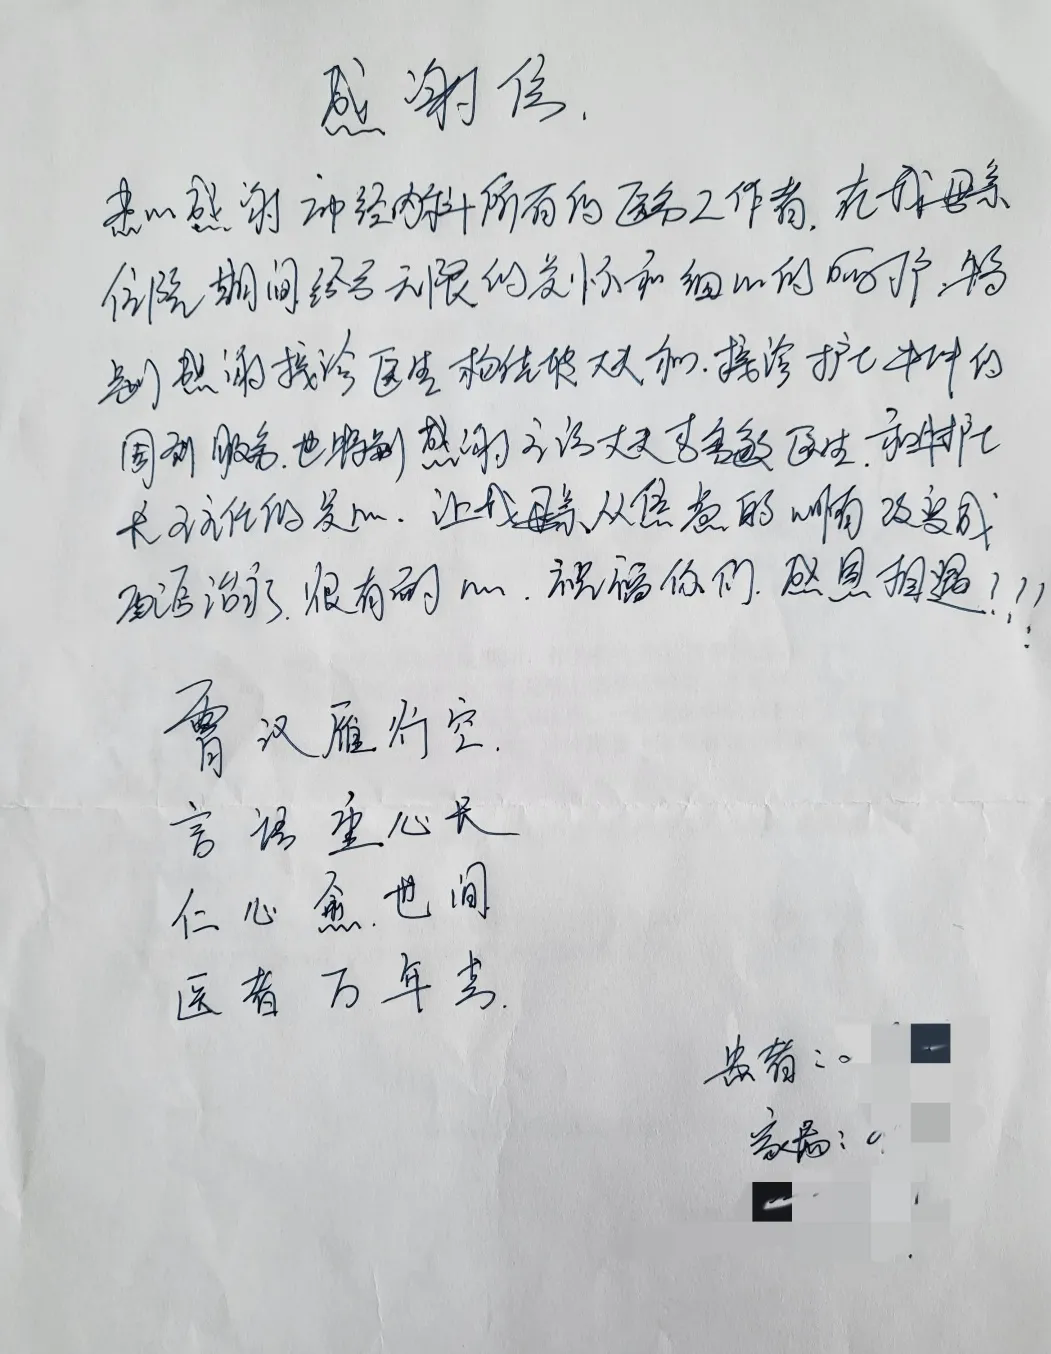 感谢信.
衷心感谢神经内科所有的医务工作者,在我母亲
住院期间给予无限的关怀和细心的呵护.特
别感谢接诊医生 大夫和.接诊护士 的
周到服务.也特别感谢主治大夫 医生.和 护士
长 主任的关心.让我母亲从焦虑的 改变成
治疗.很有耐心.祝福你们.感恩相遇!!!
霄汉雁行空.
言语重心长
仁心愈.世间
医者万年青.
患者:
家属: